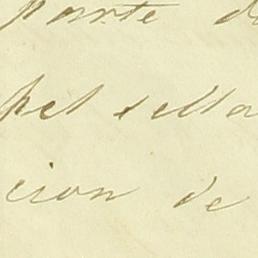 parte de
pel sella
cion de